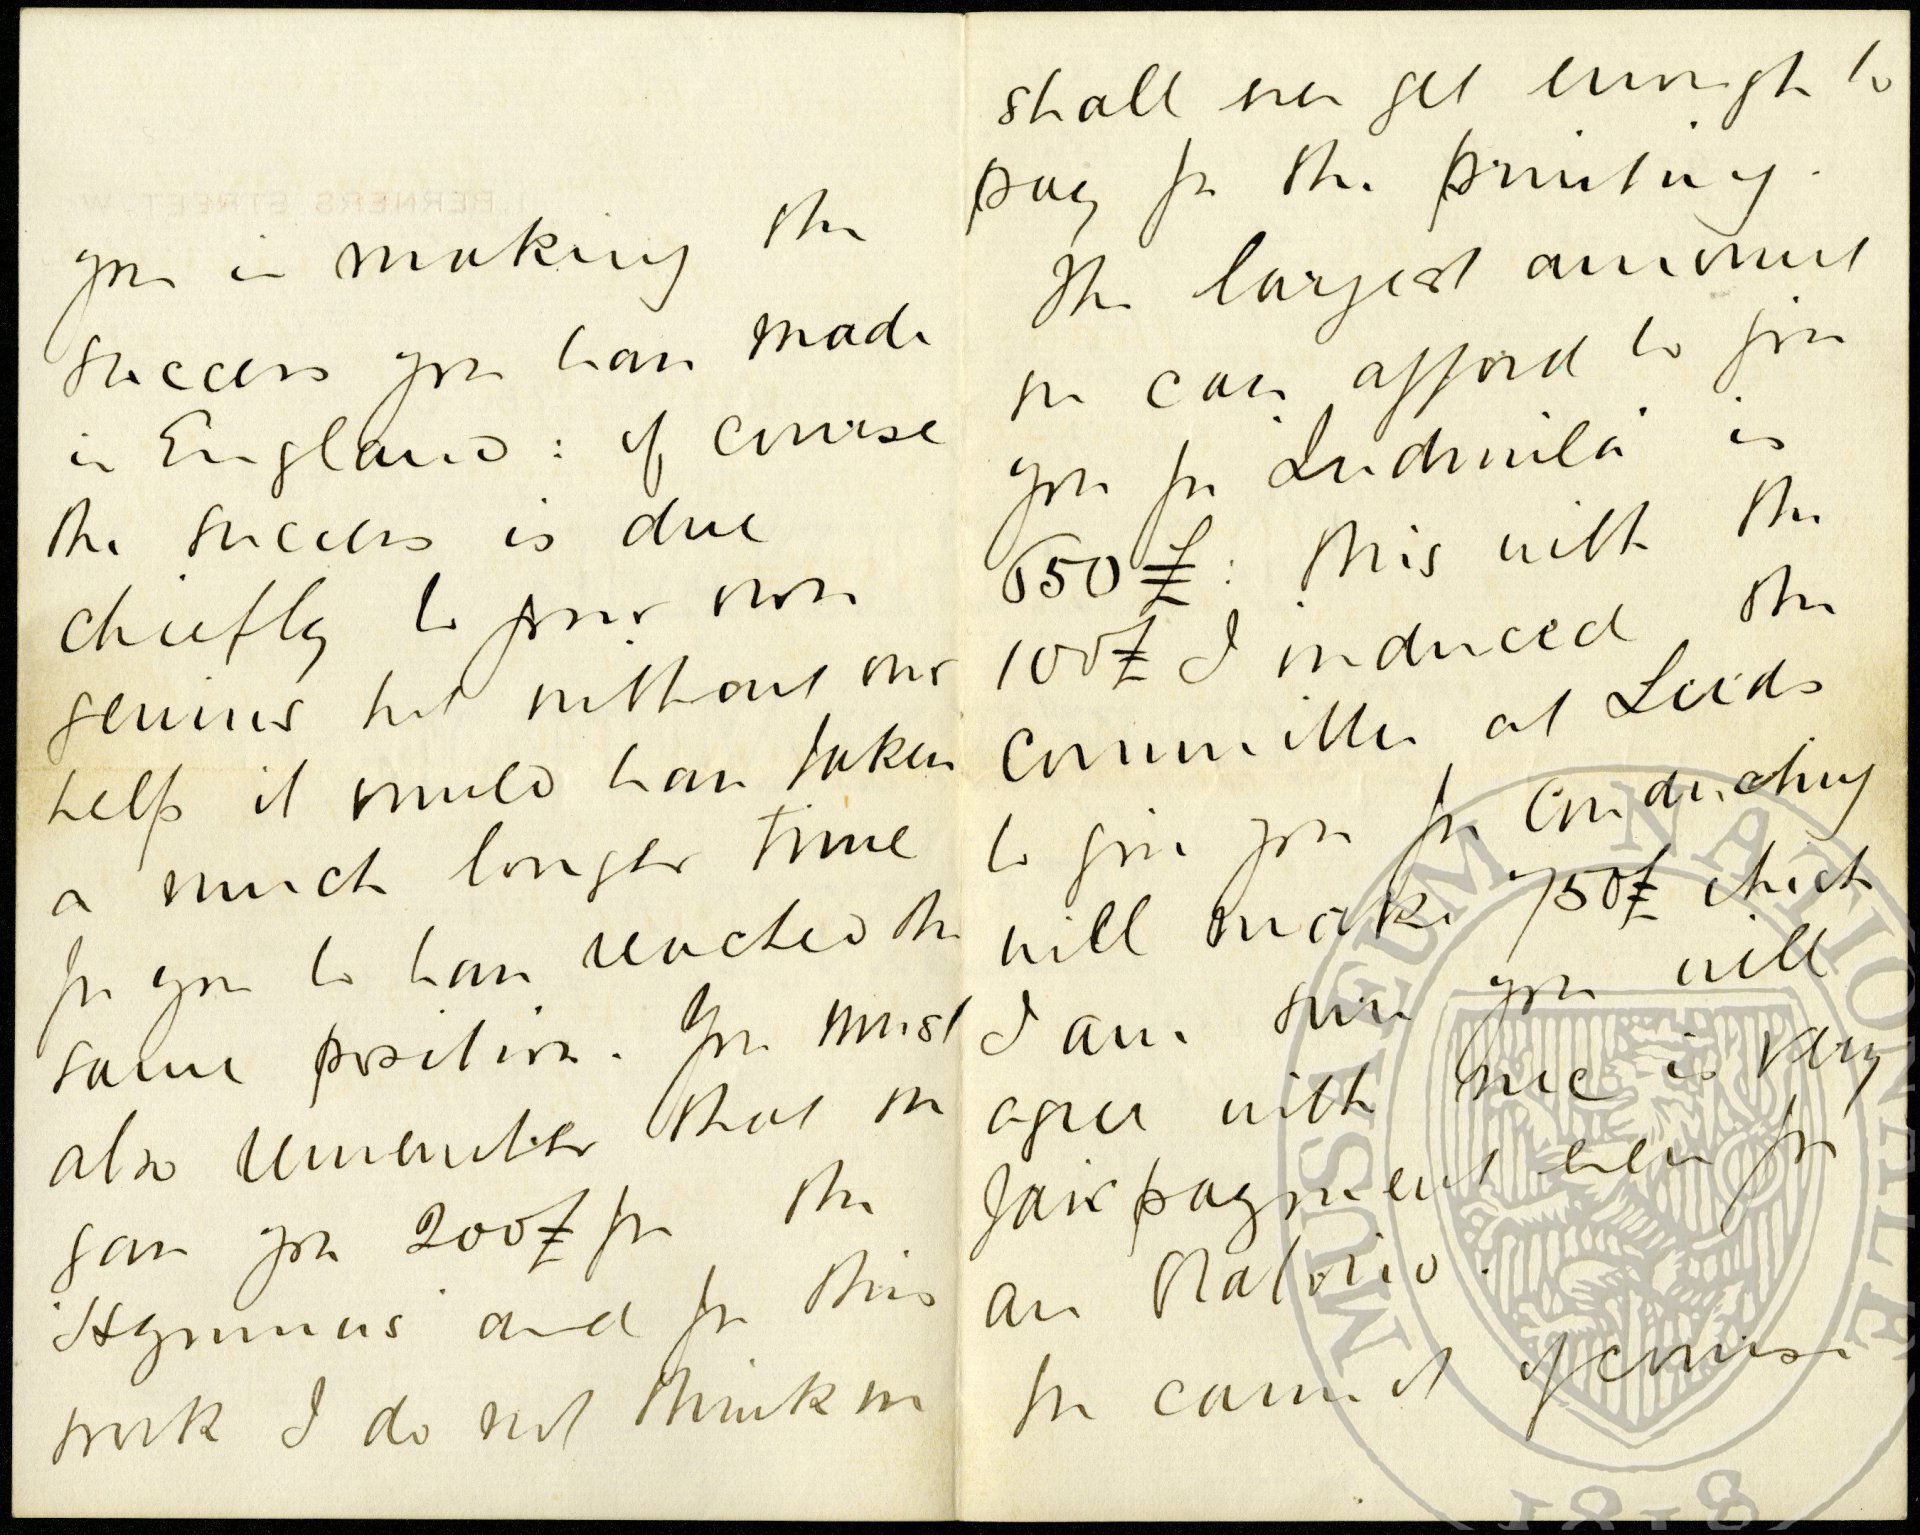 you in making the
success you have made
in England: of course
the success is due
chiefly to your own
genius but without our
help it would have taken
a much longer time
for you to have reached the
same position. You must
also remember that we
gave you 200£ for the
'Hymnus' and for this
work I do not think we
shall ever get enough to
pay for the printing.
The largest amount
we can afford to give
you for 'Ludmila' is
650£: this with the
100£ I induced the
Committee at Leeds
to give you for conducting
will make 750£ which
I am sure you will
agree with me is very
fair payment even for
an Oratorio.
We cannot of course
BERNERS STREET, W.
MUSAEUM NATIONALE
1818